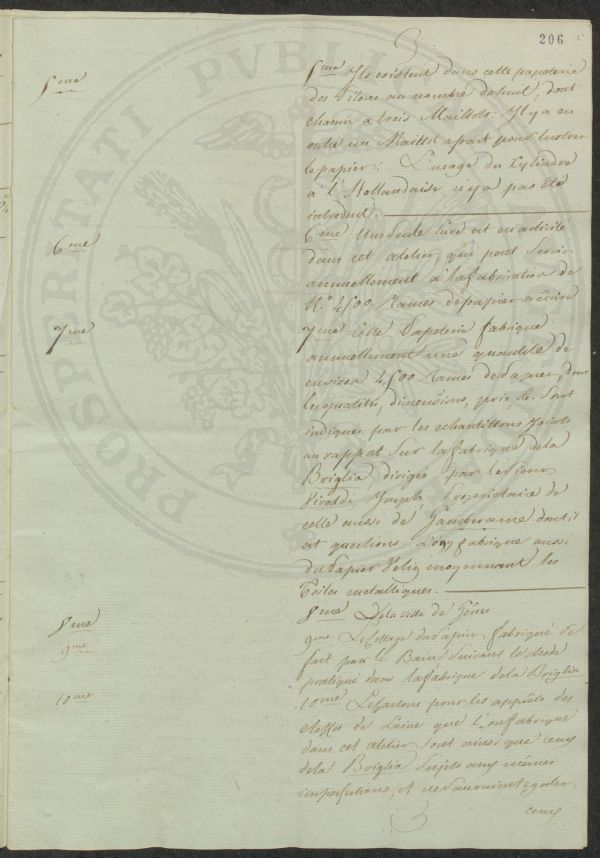 206
PROSPERITATI PVBLIC
5me
5me Ils existent dans cette papeterie
des Pilons au nombre de huit, dont
chacun a trois Maillets: Il y a en
outre un Maillet apart pour lustrer
le papier: L'usage du Cylindre
à l'Hollandaise n'y a pas été
introduit.
6me
6me Une seule cuve est en activité
dans cet atelier, qui peut servir
annuellement à la fabrication de
N.º 4500 Rames de papier à écrire
7me
7me Cette Papeterie fabrique
annuellement une quantité de
environ 4500 Rames de Papier, dont
les qualités, dimensions, prix &c. sont
indiqués par les echantillons joints
au rapport sur la fabrique de la
Briglia, dirigée par le Sieur
Vivaldi Joseph Propriétaire de
celle aussi de Gamberame dont il
est question. L'on y fabrique aussi
du Papier Velin moyennant les
Toiles metalliques.
8me
8me De la Ville de Gênes
9me
9me Le Collage du Papier fabriqué se
fait par le Bain suivant le mode
pratiqué dans la fabrique de la Briglia
10me
10me Les cartons pour les apprêts des
etoffes de Laine que l'on fabrique
dans cet atelier sont ainsi que ceux
de la Briglia sujets aux mêmes
imperfections, et ne sauraient egaler
ceux